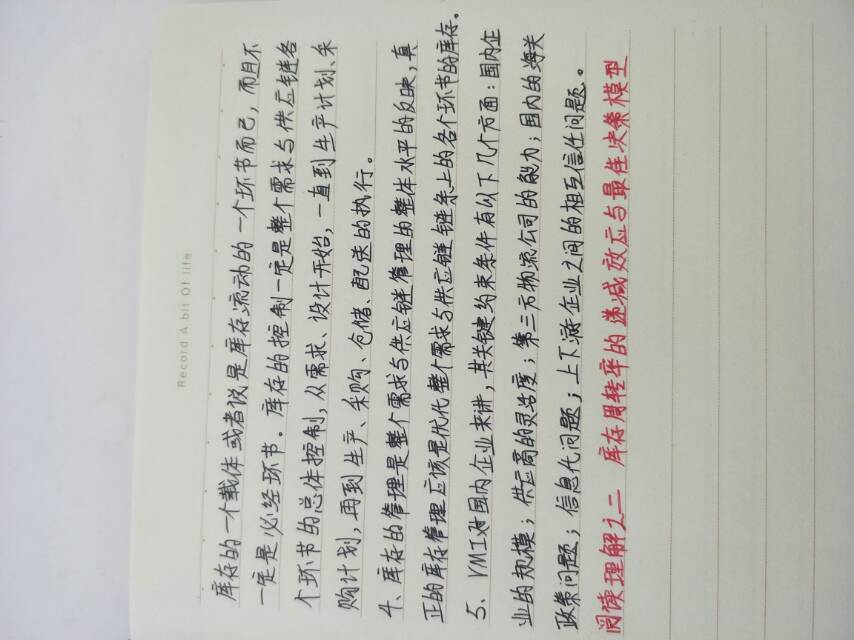 Record A bit Of life
库存的一个载体或者说是库存流动的一个环节而已，而且不
一定是必经环节。库存的控制一定是整个需求与供应链各
个环节的总体控制，从需求、设计开始，一直到生产计划、采
购计划，再到生产、采购、仓储、配送的执行。
4、库存的管理是整个需求与供应链管理的整体水平的反映，真
正的库存管理应该是优化整个需求与供应链链条上的各个环节的库存。
5、VMI对国内企业来讲，其关键约束条件有以下几个方面：国内企
业的规模；供应商的灵活度；第三方物流公司的能力；国内的海关
政策问题；信息化问题；上下游企业之间的相互信任问题。
阅读理解之二 库存周转率的递减效应与最佳决策模型